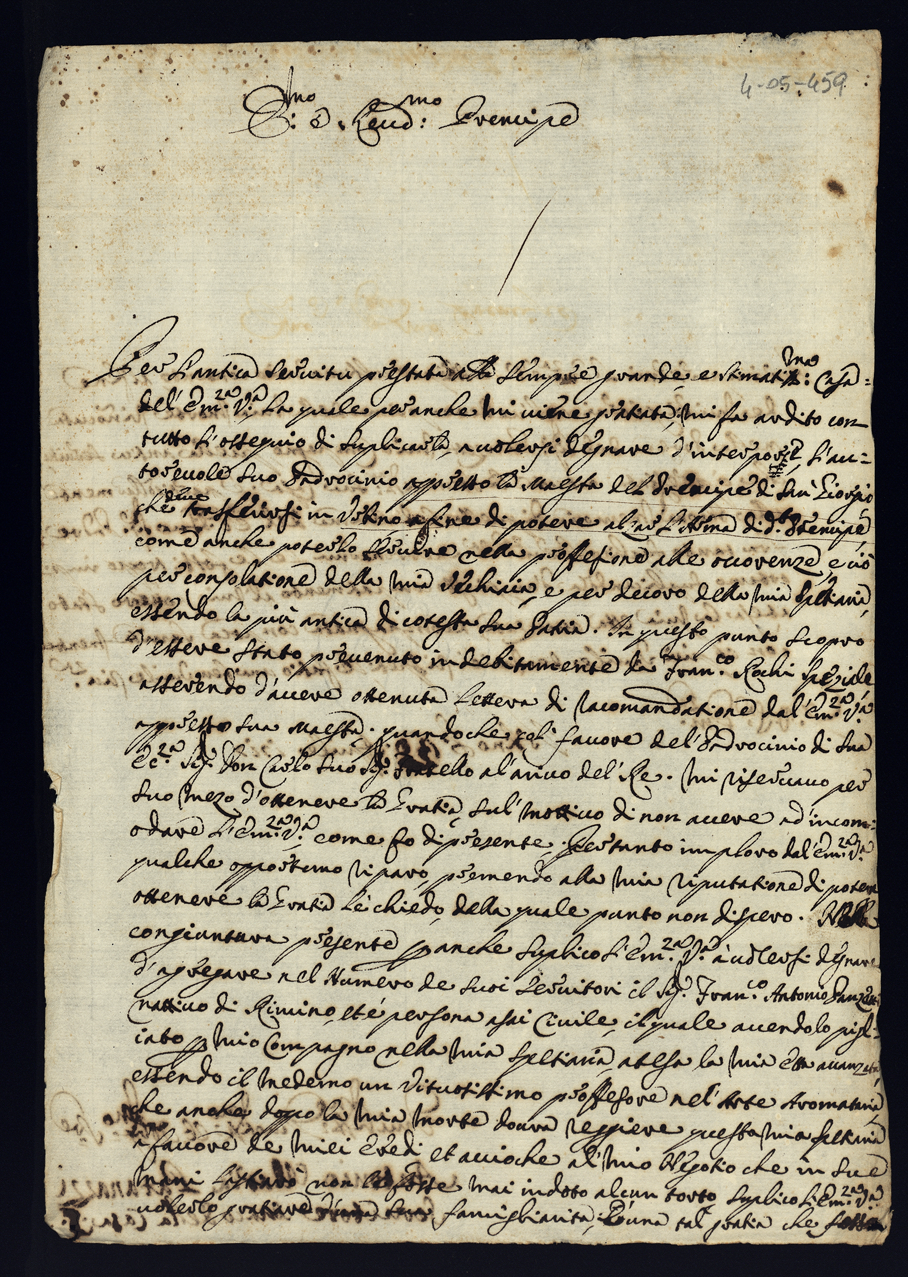 4-05-459
E:mo e Reud:mo Prencipe
Per l'antica seruitu prestata alla sempre grande, e stimatis:ma Casa
del' Em.za V.a la quale per anche mi uiene gratiata, mi fa ardito con
tutto l'ossequio di suplicarla a uolersi degnare d'interporre l'au=
toreuole suo Padrocinio appresso la Maesta del Prencipe di San Giorgio
che trasferirsi in Vrbino a fine di potere al di d.to Prencipe
come anche poterlo seruire nella proffesione alle occorenze, e ciò
per consolatione della mia Vechiaia, e per decoro della mia speltiaria
essendo la più antica di cotesta sua Patria. In questo punto scopro
d'essere stato preuenuto indebitamente da Fran.co Rochi speziale
asserendo d'auere ottenuta lettera di racomandatione dal' Em.za V.a
appresso sua Maesta, quando che col fauore del Padrocinio di sua
Ec.za Sig. Don Carlo suo Sig. fratello al'ariuo del' Re. mi riseruauo per
suo mezo d'ottenere la gratia, sul' mottiuo di non auere ad incom=
odare l'Em.za V.a come fo di presente. Pertanto imploro dal' Em.za V.a
qualche opportuno riparo, premendo alla mia riputatione di potere
ottenere la gratia le chiedo della quale punto non dispero. Nella
congiuntura presente per anche suplico l'Em.za V.a à uolersi degnare
d'agregare nel numero de suoi seruitori il Sig. Fran.co Antonio
nattiuo di Rimino, et è persona asai ciuile, il quale auendolo pigl=
iato per mio Compagno nella mia speltiaria, atesa la mia età auanzata,
essendo il medemo un uirtuosissimo proffesore nel' Arte Aromataria,
che anche doppo la mia morte dourà reggiere questa mia speltiaria
a fauore de miei eredi et accioche al' mio negotio che in sue
mani lasciarò non li fosse mai indoto alcun torto suplico l'Em.za V.a
uolerlo gratiare sua famigliarità, è una tal gratia che